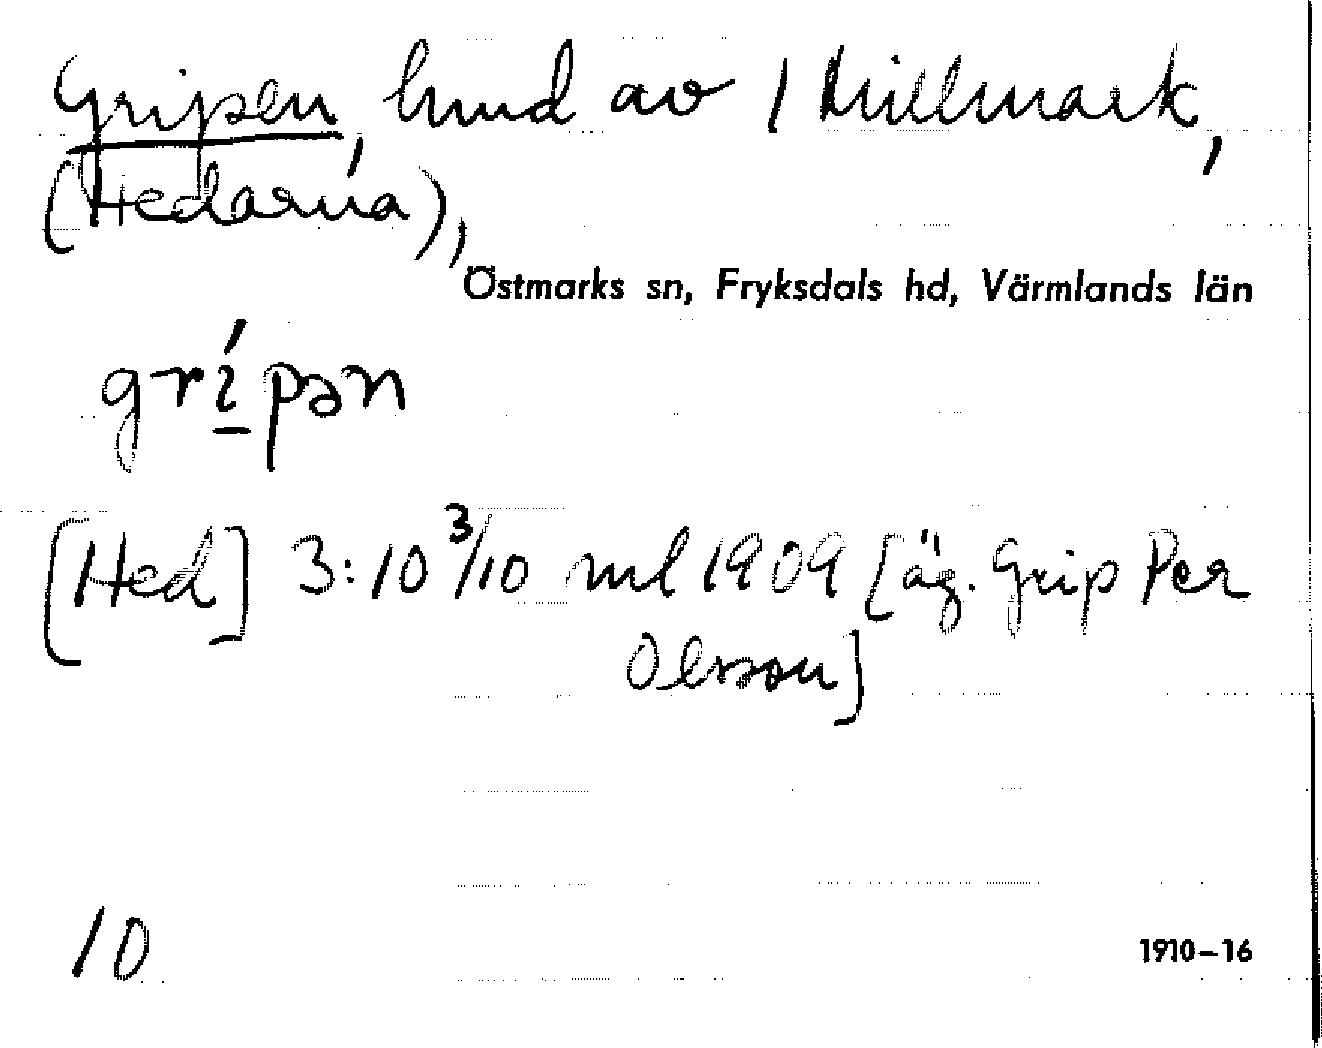 Gripen, hmd av 1 Millmark,
(Hedarna),
Östmarks sn, Fryksdals hd, Värmlands län
grí̱pən
[Hed] 3:10 3/10 ml 1909 [äg. Grip Per
Olsson]
10
1910–16